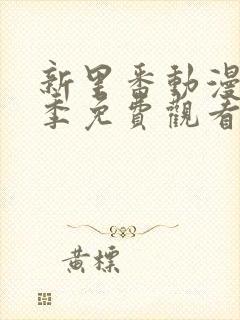 新里番動漫
季免費觀看
黃標